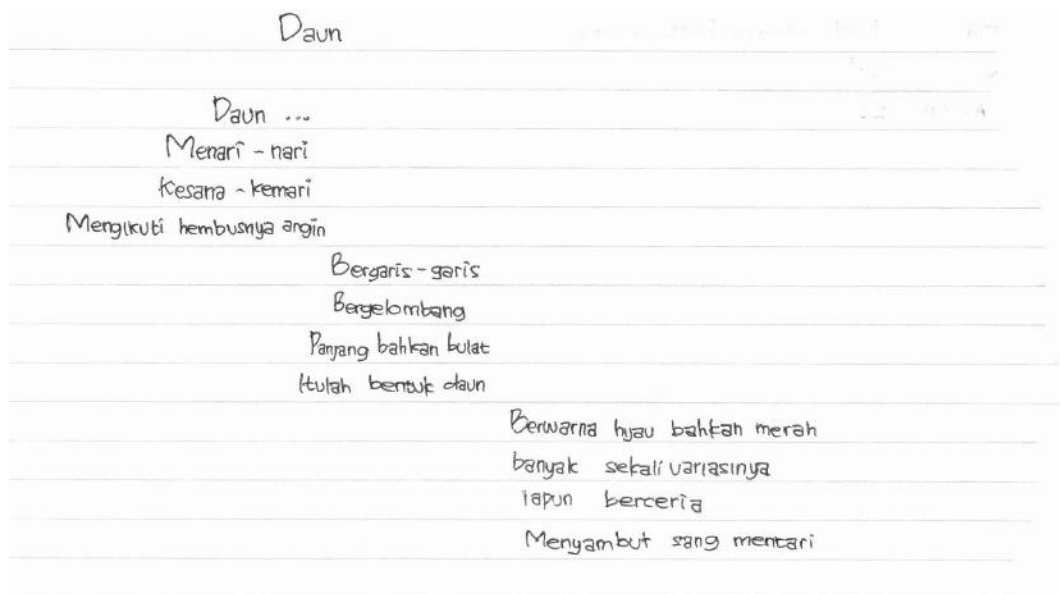 Daun
Daun ...
Menari - nari
Kesana - kemari
Mengikuti hembusnya angin
Bergaris - garis
Bergelombang
Panjang bahkan bulat
Itulah bentuk daun
Berwarna hijau bahkan merah
banyak sekali variasinya
iapun berceria
Menyambut sang mentari